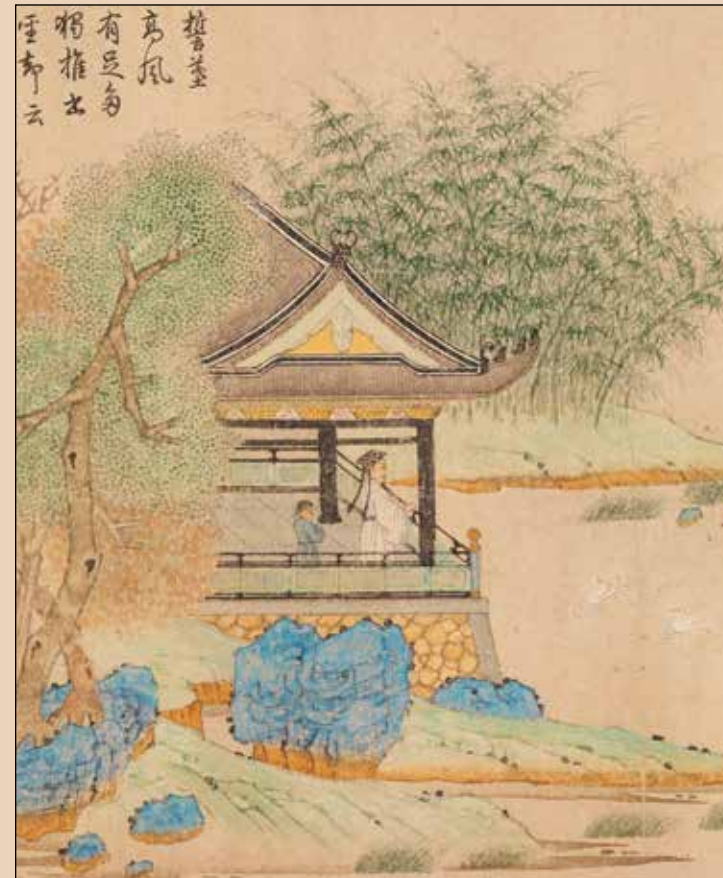 誓墓
高風
有足多
獨推書
聖却云